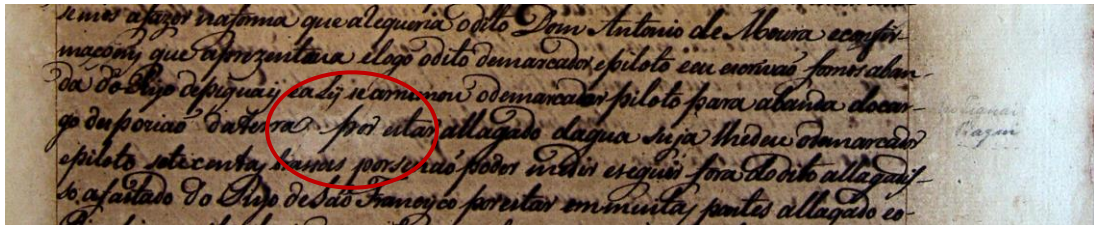 semos afazer na forma que alequeria o dito Dom Antonio de Moura e confir-
maçoens que aprezentava e logo o dito demarcador, e piloto e eu escrivaõ fomos aban-
da do Rijo de piguaij e a Lij se arrumou o demarcador piloto para abanda do car-
go da terra por estar allagado dagua suja lhe deu o demarcador
e piloto sete centas braças por se naõ poder medir e seguir fora do dito allagadis-
so afastado do Rijo de Saõ Francisco por estar em muitas partes allagado eo-